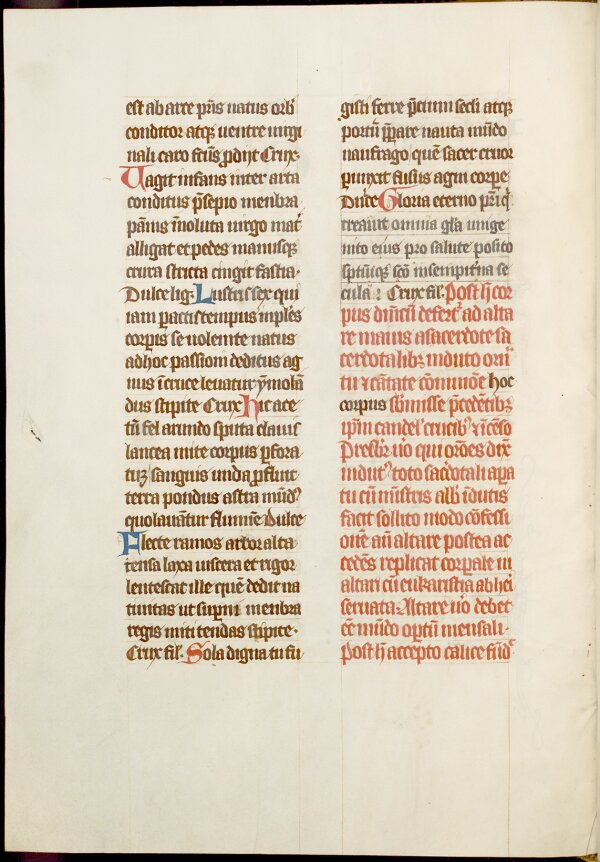 est ab arce pr̄is natus orb̄
conditor atq; uentre uirgi
nali caro fc̄us ꝓdijt Crux·
Uagit infans inter arta
conditus p̄sepio menbra
pānis īuoluta uirgo mat᷑
alligat et pedes manusq;
crura stricta cingit fastia·
Dulce lig· Lustris sex qui
iam ꝑactis tempus inples
corpis se uolente natus
ad hoc passioni deditus ag
nus ī cruce leuatur ȳmolā
dus stipite Crux Hic ace
tū fel arundo sputa claui
lancea mite corpus ꝑfora
tur sanguis unda ꝓfluit
terra pondus astra mūd᷒
quo lauātur flumīe Dulce
Flecte ramos arbor alta
tensa laxa uiscera et rigor
lentescat ille quē dedit na
tiuitas ut suꝑni menbra
regis miti tendas stipite·
Crux fil· Sola digna tu fu
isti ferre p̄cium secli atq;
portū p̄ꝑare nauta mūdo
naufrago quē sacer cruor
ꝑunxit fusus agni corpe
Dulce Gloria eterno pr̄i q̇
creauit omnia gl̄a unige
nito eius pro salute posito
sp̄uiq; sc̄o in sempit̄na se
cula : Crux fil· Post h̄ cor
pus dn̄icū defert᷑ ad alta
re maius a sacerdote sa
cerdotalib; induto orn̄
tu ⁊ cātate cōmunōe hoc
corpus sb̄misse p̄cedētib;
ip̄m candel᷑ crucib᷒ ⁊ īcēso
Presbr̄ uo qui orōes dix̄
indut᷒ toto sac̄dotali aꝑa
tu cū mīstris alb̄ īdutis
facit sollito modo cōfessi
onē an̄ altare postea ac
cedēs replicat corꝑale in
altari cū eukaristia ab hei
seruata· Altare u͛o debet
eē mūdo oꝑtū mensali·
Post h̄ accepto calice fūd᷑